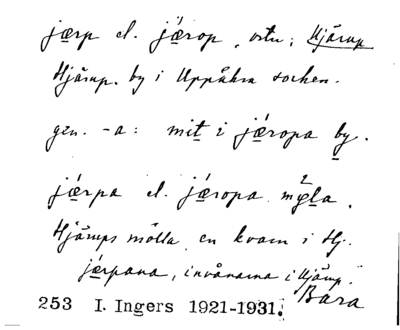 jærp el. jǽrop, ortn; Hjärup
Hjärup. by i Uppåkra socken.
gen. -a: mit i jǽropa by.
jǽrpa el. jǽropa mø̀la.
Hjärups mölla, en kvarn i Hj.
jǽrpana, invånarna i Hjärup.
Bara
253 I. Ingers 1921-1931.